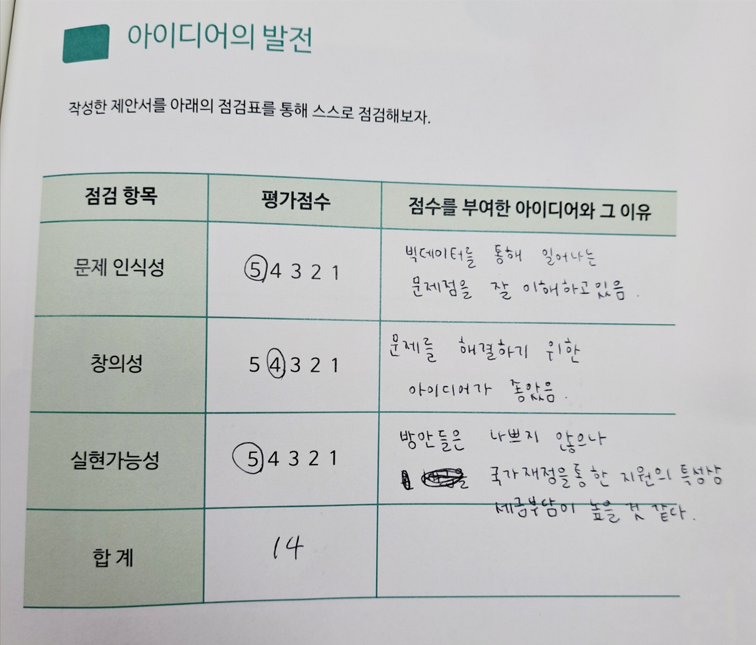 아이디어의 발전
작성한 제안서를 아래의 점검표를 통해 스스로 점검해보자.
점검 항목 평가점수 점수를 부여한 아이디어와 그 이유
문제 인식성 5 4 3 2 1 빅데이터를 통해 일어나는
문제점을 잘 이해하고있음.
창의성 5 4 3 2 1 문제를 해결하기 위한
아이디어가 좋았음.
실현가능성 5 4 3 2 1 방안들은 나쁘지 않으나
국가재정을통한 지원의 특성상
세금부담이 높을 것 같다.
합 계 14